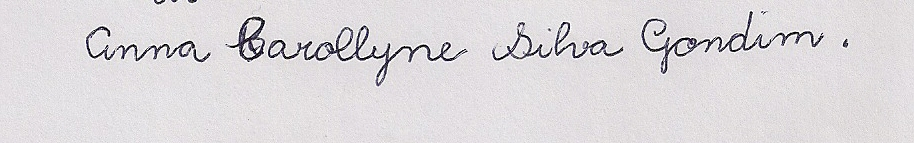 Anna Carollyne Silva Gondim.